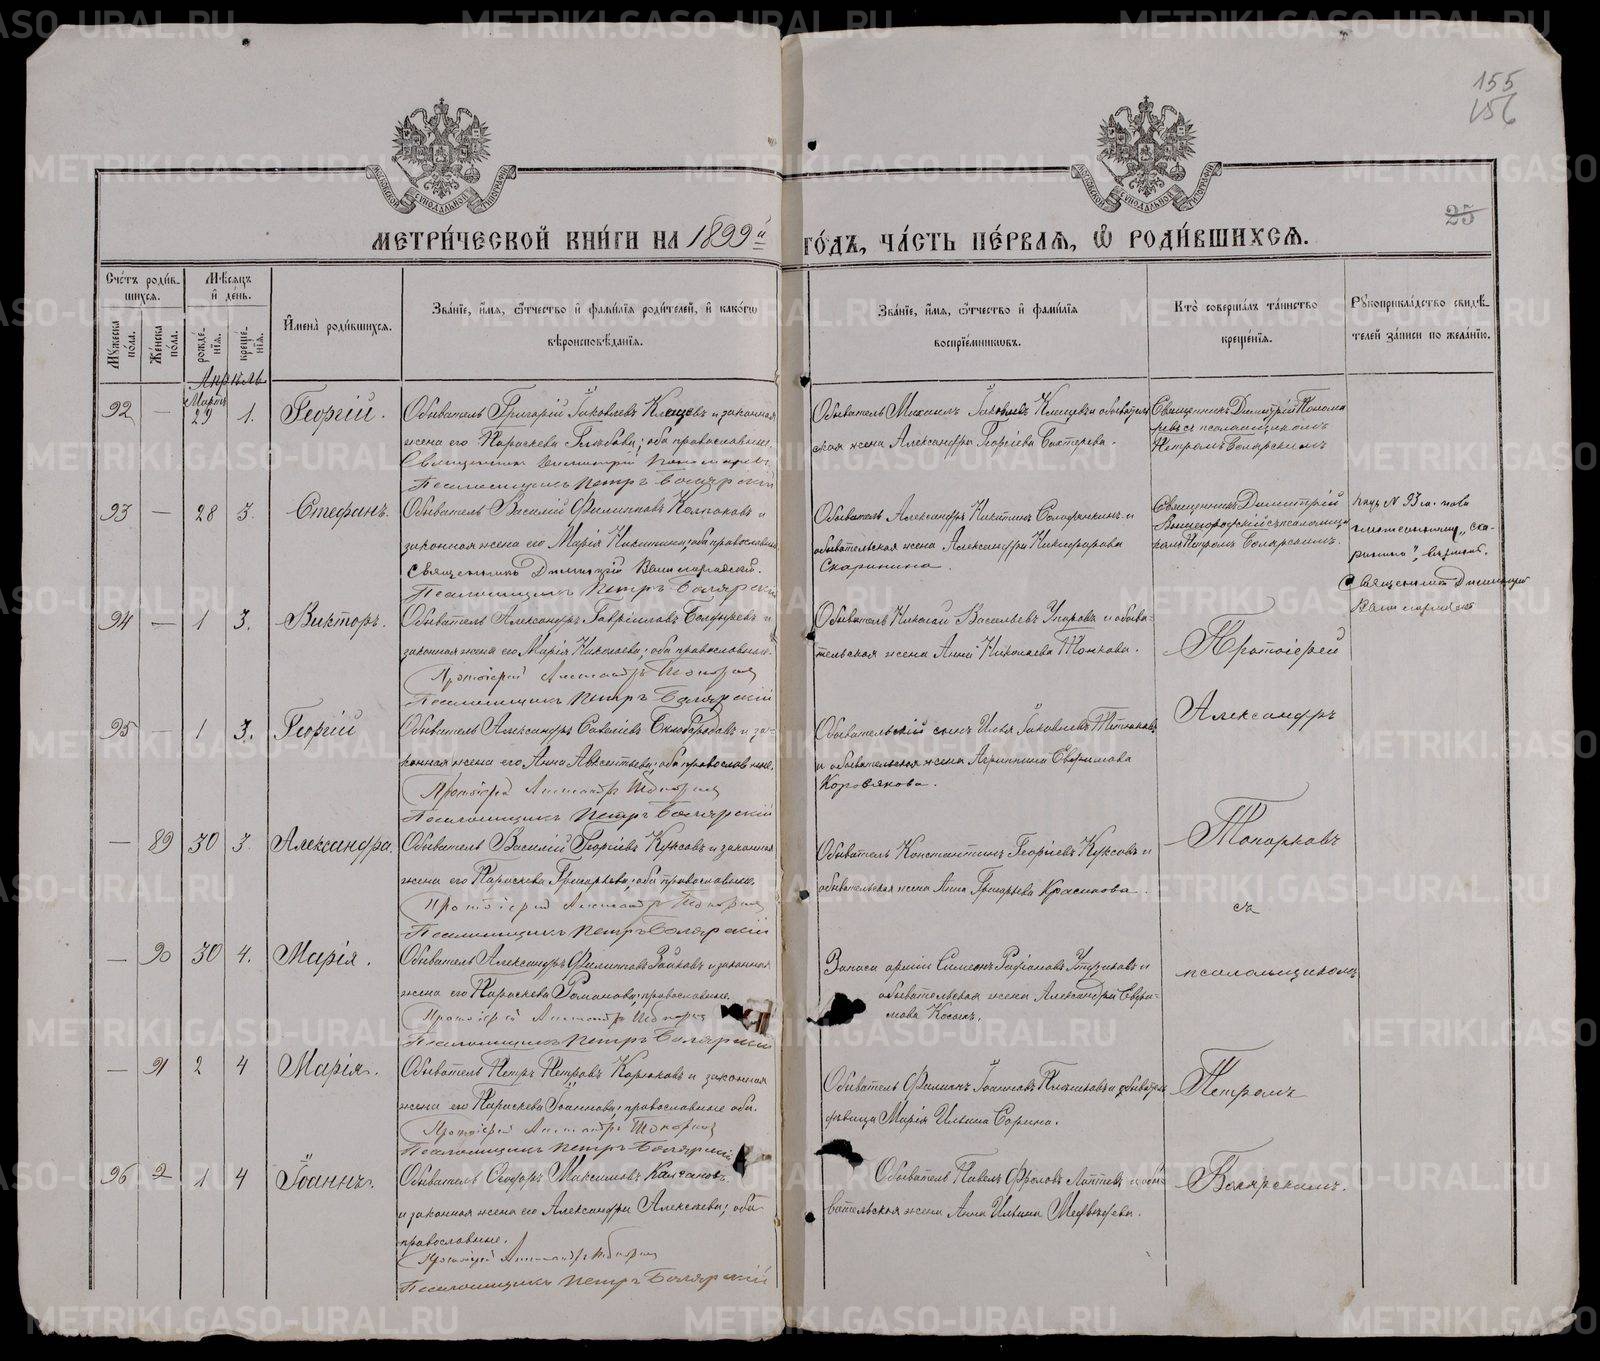 155
156
25
МОСКОВСКОЙ СУНОДАЛЬНОЙ ТИПОГРАФІИ
МЕТРИ́ЧЕСКОЙ КНИ́ГИ НА 1899й ГО́ДЪ, ЧА́СТЬ ПЕ́РВАЯ, Ѡ РОДИ́ВШИХСЯ.
Сче́тъ роди́вшихся.
Мѣ́сяцъ и҆ де́нь.
Мꙋжеска по́ла.
Же́нска по́ла.
рожде́нїѧ.
креще́нїѧ.
И҆мена̀ роди́вшихся.
Зва́нїе, и҆́мя, ѻ҆́тчество и҆ фами́лїѧ роди́телей, и҆ како́гѡ вѣроисповѣ́данїѧ.
Зва́нїе, и҆́мя, ѻ҆́тчество и҆ фами́лїѧ воспрїе́мникѡвъ.
Кто̀ соверша́лъ та́инство креще́нїѧ.
Рꙋкоприкла́дство свидѣ́телей за́писи по жела́нїю.
Апрѣль
92 — Марта 29 1. Георгій.
Обыватель Григорій Іаковлевъ Клещевъ и законная
жена его Параскева Глѣбова; оба православные.
Священникъ Димитрій Пономаревъ
Псаломщикъ Петръ Боярскій
Обыватель Михаилъ Іаковлевъ Клещевъ и обыватель
ская жена Александра Георгіева Бахтярева.
Священникъ Димитрій Понома
ревъ съ псаломщикомъ
Петромъ Боярскимъ
93 — 28 3. Стефанъ.
Обыватель Василій Филипповъ Колпаковъ и
законная жена его Марія Никитина; оба православные
Священникъ Димитрій Вышегородскій.
Псаломщикъ Петръ Боярскій
Обыватель Александръ Никитинъ и
обывательская жена Александра Никифорова
Скарынина.
Священникъ Димитрій
Вышегородскій съ псаломщи
комъ Петромъ Боярскимъ.
Священникъ Димитрій
94 — 1 3. Викторъ.
Обыватель Александръ Гавріиловъ Болдыревъ и
законная жена его Марія Николаева; оба православные.
Протоіерей Александръ Топорковъ
Псаломщикъ Петръ Боярскій
Обыватель Николай Васильевъ Упоровъ и обыва-
тельская жена Анна Николаева Тонкова.
Протоіерей
95 — 1 3. Георгій
Обыватель Александръ Савеліевъ Скобородовъ и за-
конная жена его Анна Авксентьева; оба православные.
Протоіерей Александръ Топорковъ
Псаломщикъ Петръ Боярскій
Обывательскій сынъ Илья Іаковлевъ
и обывательская жена Агриппина Евфимова
Коровякова.
Александръ
— 89 30 3. Александра.
Обыватель Василій Георгіевъ Куксовъ и законная
жена его Параскева Григорьева; оба православные.
Протоіерей Александръ Топорковъ
Псаломщикъ Петръ Боярскій
Обыватель Константинъ Георгіевъ Куксовъ и
обывательская жена Анна Григорьева Красикова.
Топорковъ
съ
— 90 30 4. Марія.
Обыватель Александръ Филипповъ Зайковъ и законная
жена его Параскева Романова; православные.
Протоіерей Александръ Топорковъ
Псаломщикъ Петръ Боярскій
Запаса арміи Симеонъ и
обывательская жена Александра Евфи-
мова Косыхъ.
псаломщикомъ
— 91 2 4 Марія.
Обыватель Петръ Петровъ Корюковъ и законная
жена его Параскева Іоаннова; православные оба.
Протоіерей Александръ Топорковъ
Псаломщикъ Петръ Боярскій
Обыватель Филиппъ Іоанновъ и обыватель
дѣвица Марія Ильина Сорина.
Петромъ
96 2 1 4 Іоаннъ.
Обыватель Ѳеодоръ Максимовъ
и законная жена его Александра Алексѣева; оба
православные.
Протоіерей Александръ Топорковъ
Псаломщикъ Петръ Боярскій
Обыватель Павелъ Фроловъ Лаптевъ и обы
вательская жена Анна Ильина Медвѣдева.
Боярскимъ.
METRIKI.GASO-URAL.RU